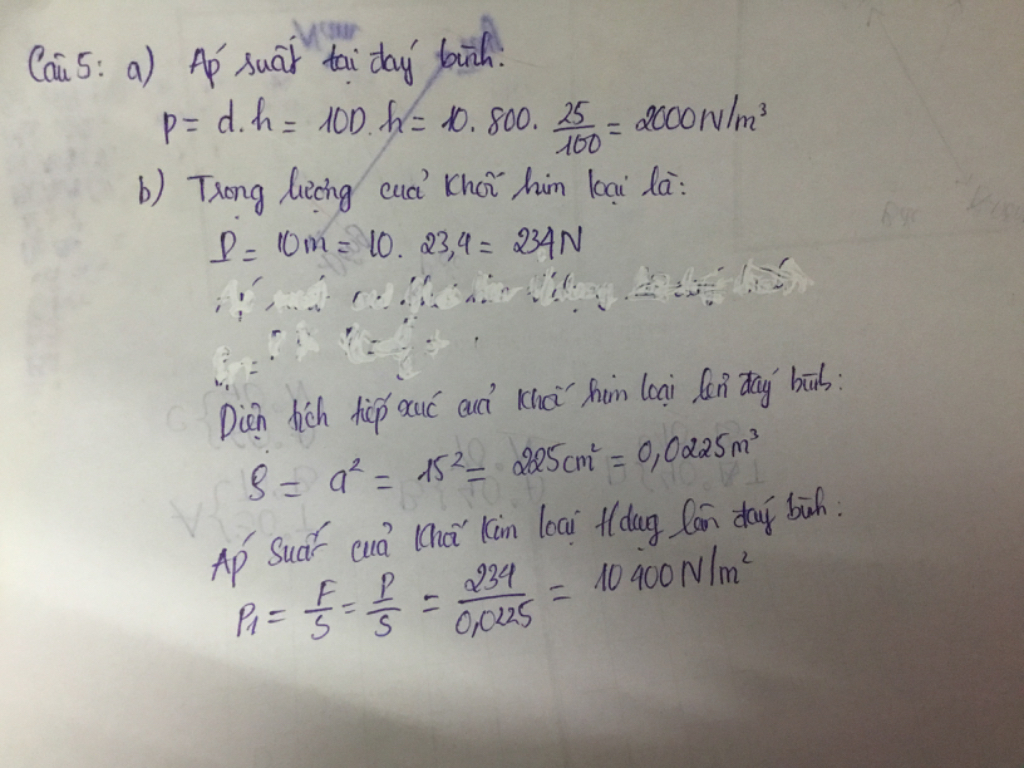 Câu 5: a) Áp suất tại đáy bình:
p = d.h = 10D.h = 10. 800. 25/100 = 2000 N/m³
b) Trọng lượng của khối kim loại là:
P = 10m = 10. 23,4 = 234 N
Diện tích tiếp xúc của khối kim loại lên đáy bình:
S = a² = 15² = 225 cm² = 0,0225 m³
Áp suất của khối kim loại t/dụng lên đáy bình:
P₁ = F/S = P/S = 234/0,0225 = 10 400 N/m²